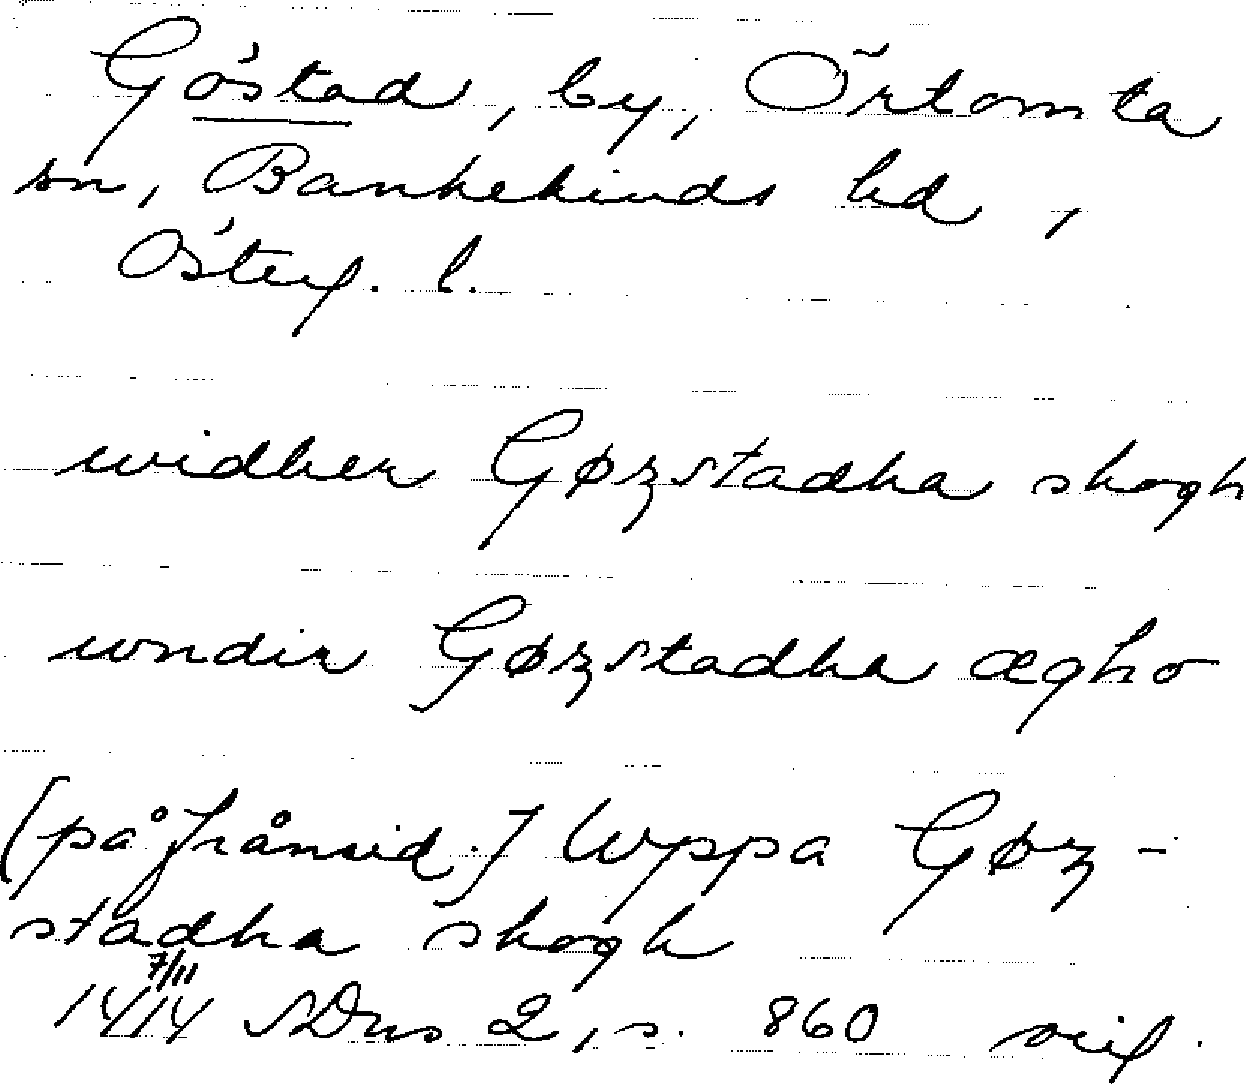 Göstad, by, Örtomta
sn, Bankekinds hd,
Österg. l.
widher Gøzstadha skogh
wndir Gøzstadha ægho
[på frånsid.] Wppa Gøz-
stadha skogh
7/11
1414 SDns 2, s. 860 orig.